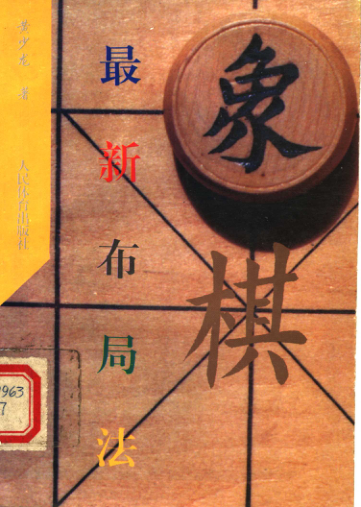 黄少龙 著
人民体育出版社
象棋
最新布局法
9963
7